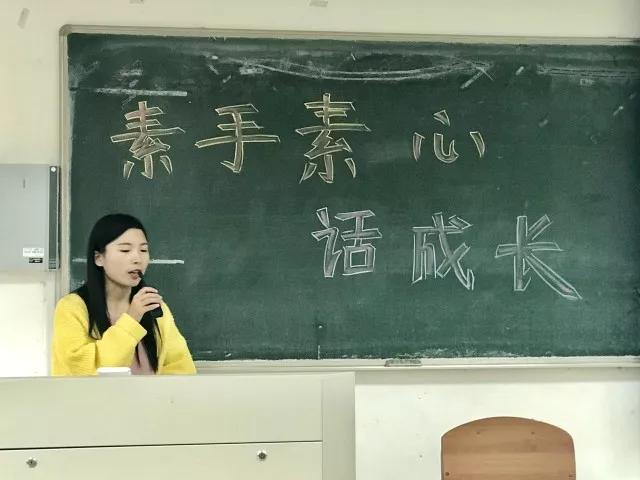 素手素心
话成长